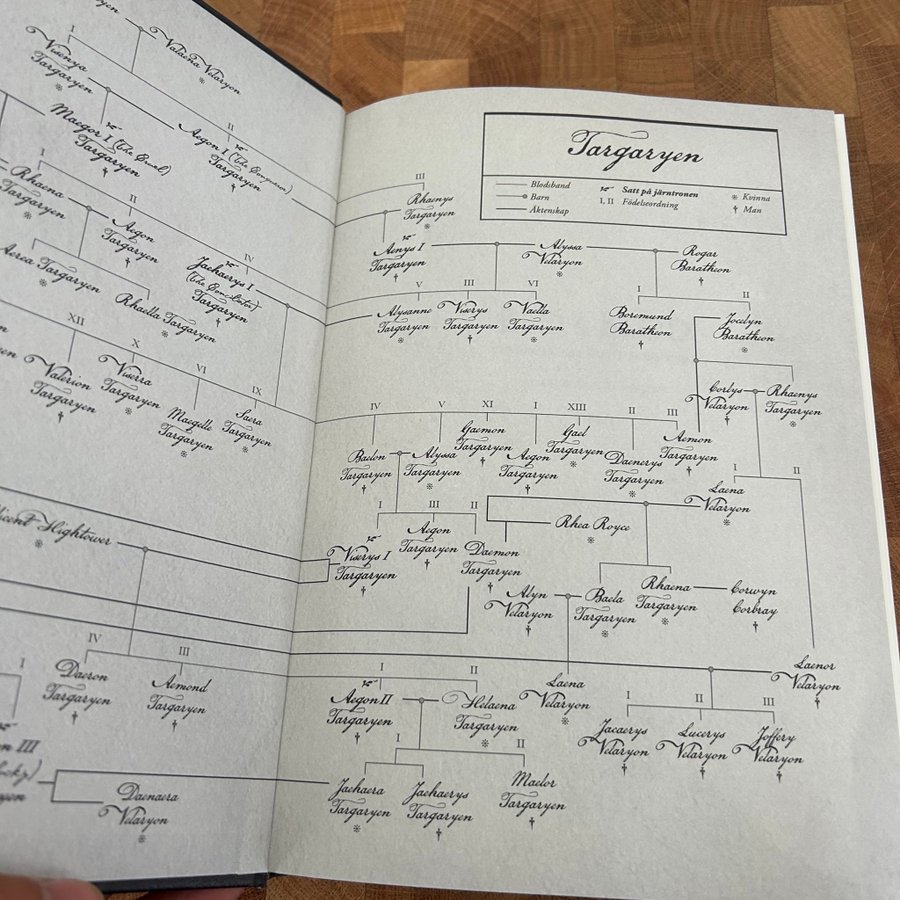 Valaena Velaryon
I
Visenya
Targaryen
II
Maegor I (the Cruel)
Targaryen
Aegon I (the Conqueror)
Targaryen
I
Rhaena
Targaryen
II
Aegon
Targaryen
IV
Jaehaerys I
(the Conciliator)
Targaryen
Aerea Targaryen
Rhaella Targaryen
XII
Valerion
Targaryen
X
Viserra
Targaryen
VI
Maegelle
Targaryen
IX
Saera
Targaryen
Hightower
IV
Daeron
Targaryen
III
Aemond
Targaryen
I
III
Daenaera
Velaryon
Targaryen
Blodsband
Barn
Äktenskap
Satt på järntronen
I, II Födelseordning
Kvinna
Man
III
Rhaenys
Targaryen
Aenys I
Targaryen
Alyssa
Velaryon
Rogar
Baratheon
V
III
VI
Alysanne
Targaryen
Viserys
Targaryen
Vaella
Targaryen
I
II
Boremund
Baratheon
Jocelyn
Baratheon
Corlys
Velaryon
Rhaenys
Targaryen
IV
V
XI
I
XIII
II
III
Baelon
Targaryen
Alyssa
Targaryen
Gaemon
Targaryen
Aegon
Targaryen
Gael
Targaryen
Daenerys
Targaryen
Aemon
Targaryen
I
II
Laena
Velaryon
I
III
II
Viserys I
Targaryen
Aegon
Targaryen
Daemon
Targaryen
Rhea Royce
Alyn
Velaryon
Baela
Targaryen
Rhaena
Targaryen
Corwyn
Corbray
Laenor
Velaryon
I
II
Aegon II
Targaryen
Helaena
Targaryen
Laena
Velaryon
I
II
III
Jacaerys
Velaryon
Lucerys
Velaryon
Joffery
Velaryon
I
II
Jaehaera
Targaryen
Jaehaerys
Targaryen
Maelor
Targaryen